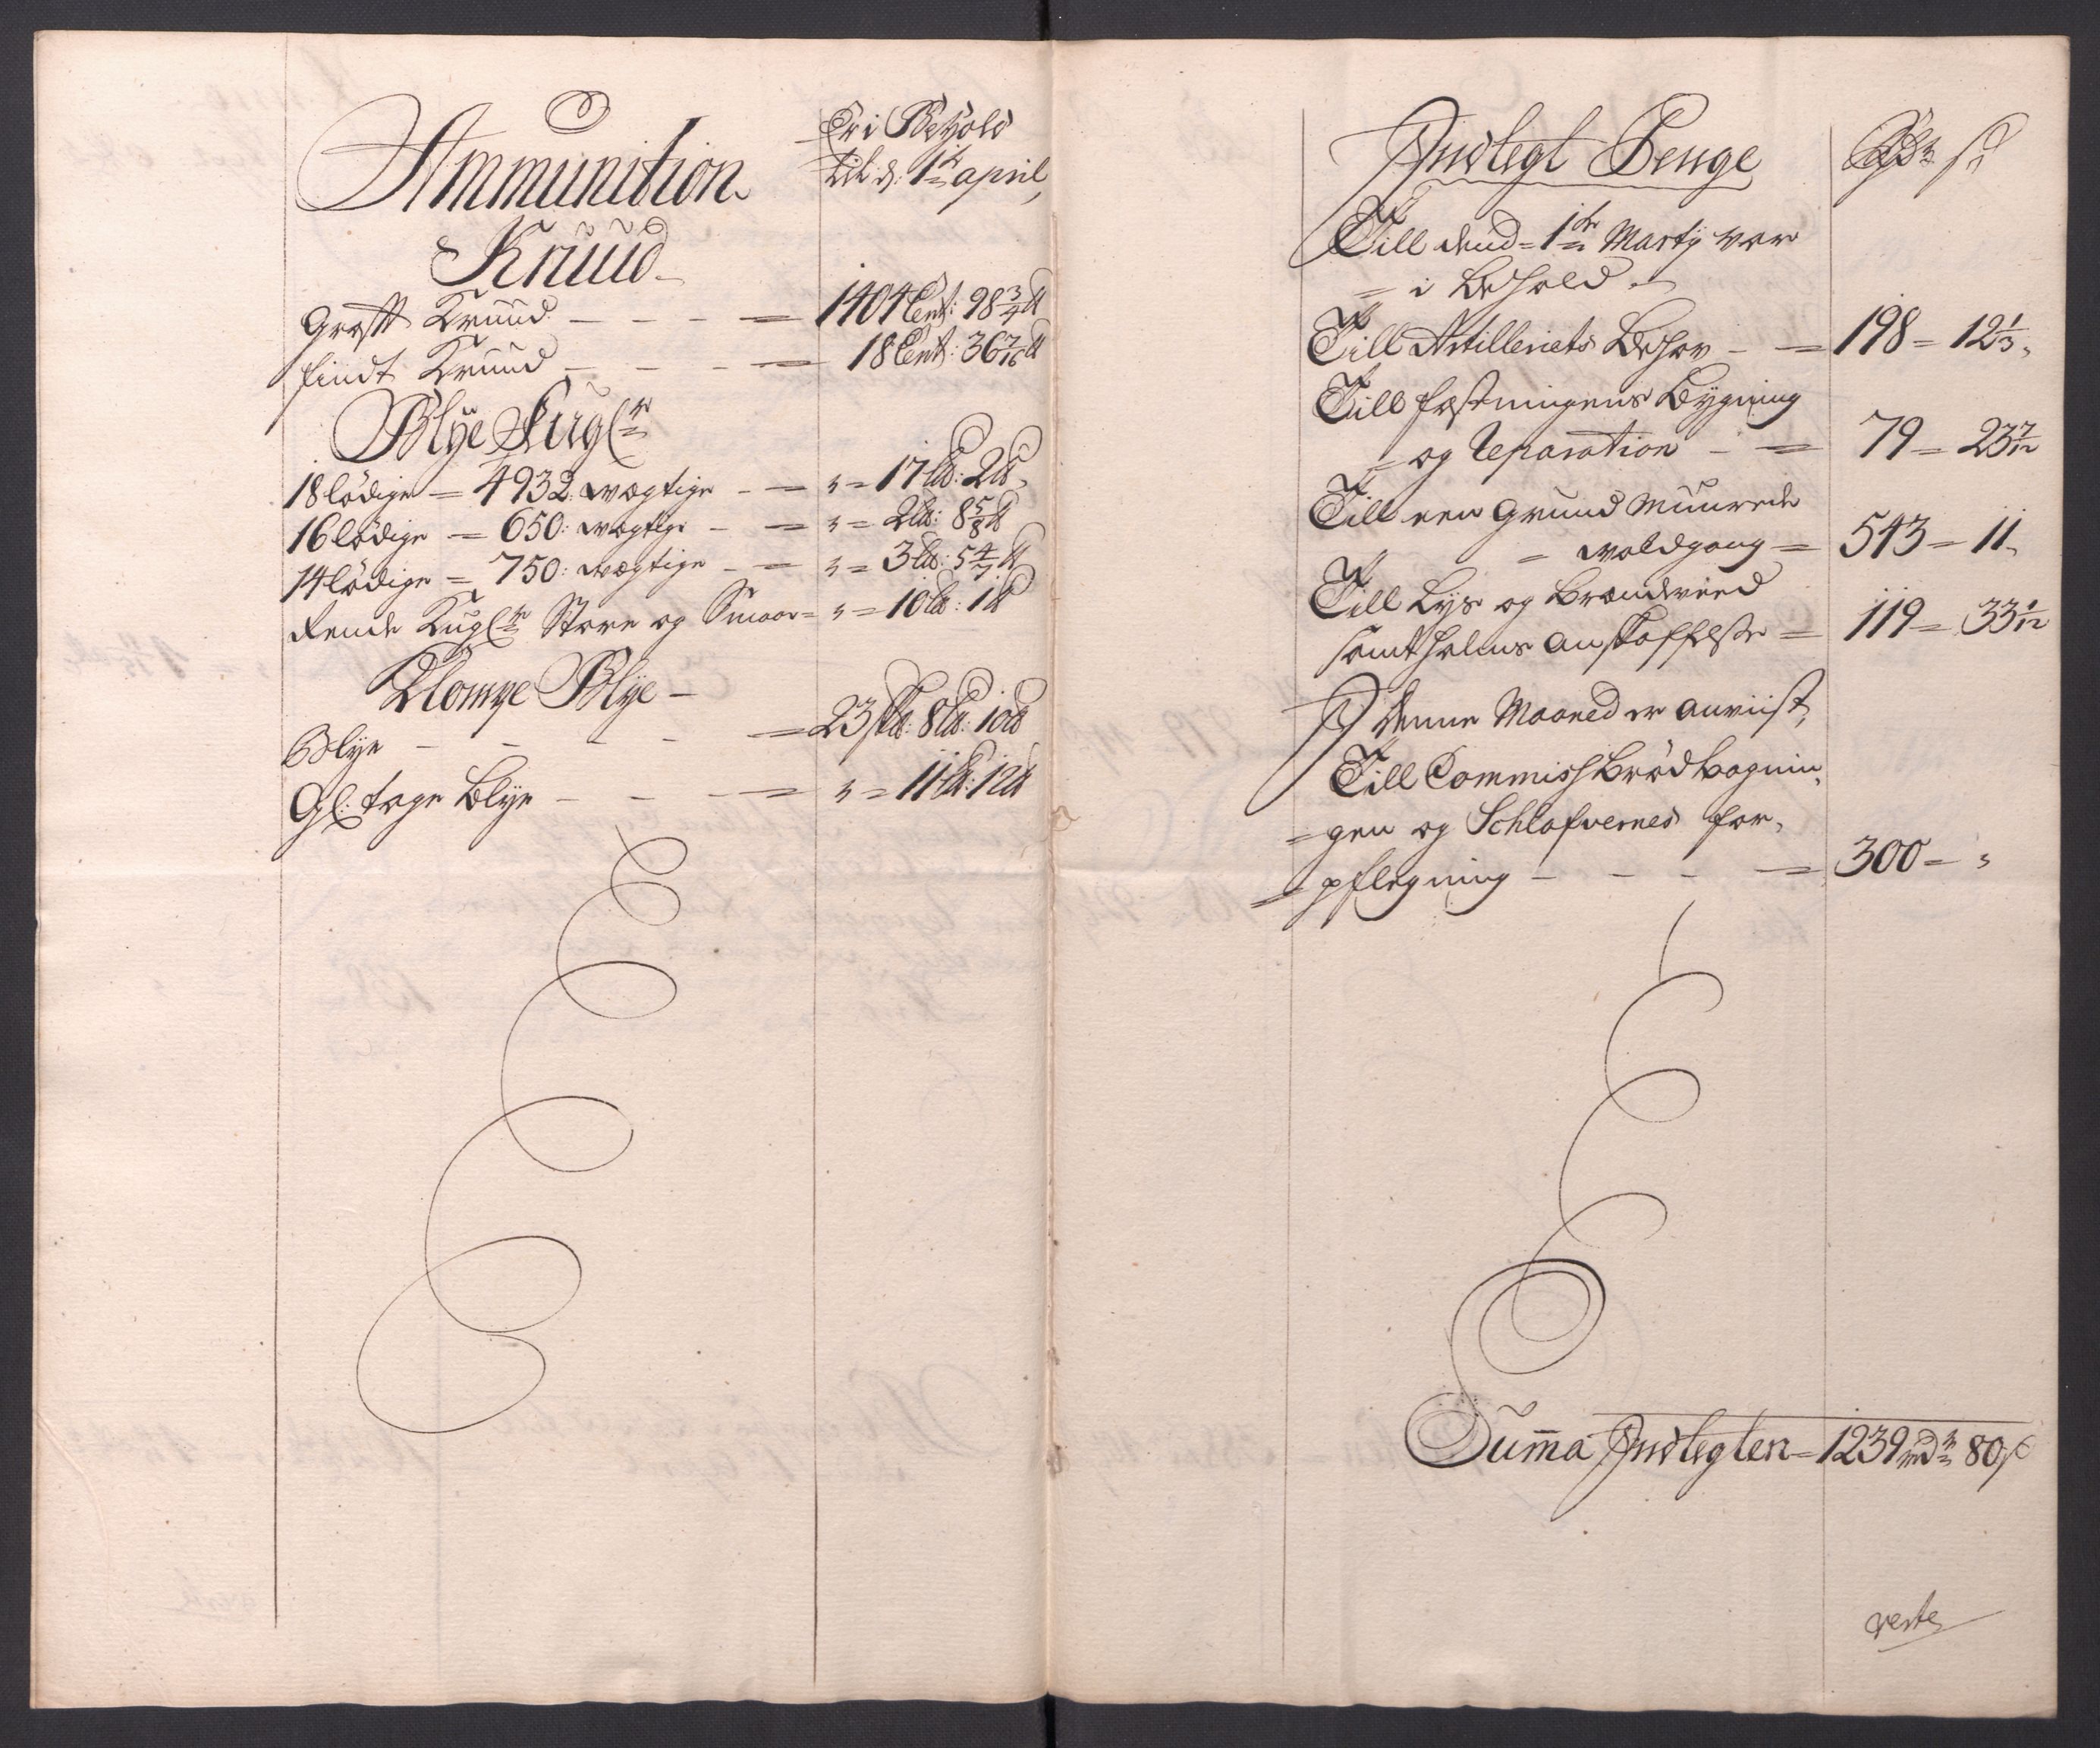 Ammunition
Er i Behold
til d: 1te april
Krüüd
Groft Krüüd — — — = 1404 Cent: 98 3/4 ℔
findt Krüüd — — — = 18 Cent: 36 7/16 ℔
Blÿe Kugler
18 lödige = 4932: wægtige — = " = 17 L℔: 2 ℔
16 lödige = 650: wægtige — = " = 2 L℔: 8 5/8 ℔
14 lödige = 750: wægtige — = " = 3 L℔: 5 4/7 ℔
Rende Kugler Store og Smaae = " = 10 L℔: 1 ℔
Klompe Blÿe —
Blÿe — — — — = 23 Sk℔: 8 L℔: 10 ℔
Gl: tage Blÿe — — — = " = 11 L℔: 12 ℔
Indtegt Penge
Rdr ß
Till dend = 1te Martÿ var
= i Behold.
Till Artilleriets Behov — = 198 = 12 1/3 "
Till fæstningens Bÿgning
= og Reparation — = 79 = 23 7/12
Till een Grund Muurede
= woldgang = 543 = 11 "
Till Lÿs og Brændeveed
samt halms anskaffelse = 119 = 33 1/12
I denne Maaned er anviist,
Till Commiss Brödbagnin,
= gen og Schlafvernes for,
= pflegning — — — = 300 = "
Sum̄a Indtegten = 1239 rdr 80 ß
verte